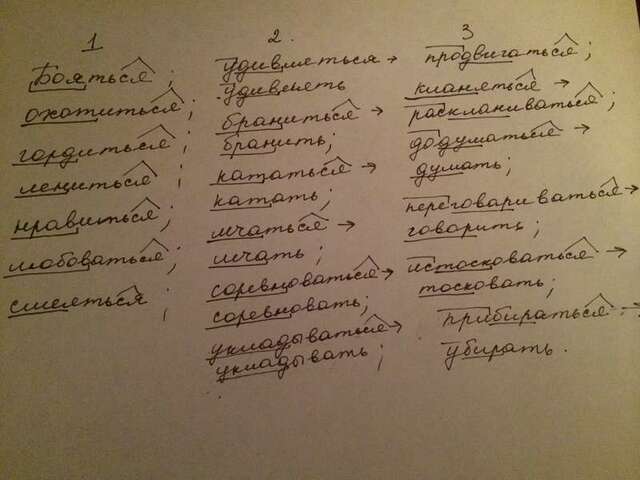 1
Бояться;
охотиться;
гордиться;
лениться;
нравиться;
любоваться;
смеяться;
2.
удивляться →
удивлять
браниться →
бранить;
кататься →
катать;
мчаться →
мчать;
соревноваться →
соревновать;
укладываться →
укладывать;
3
продвигаться;
кланяться →
раскланиваться;
додуматься →
думать;
переговариваться →
говорить;
истосковаться →
тосковать;
прибираться →
убирать.